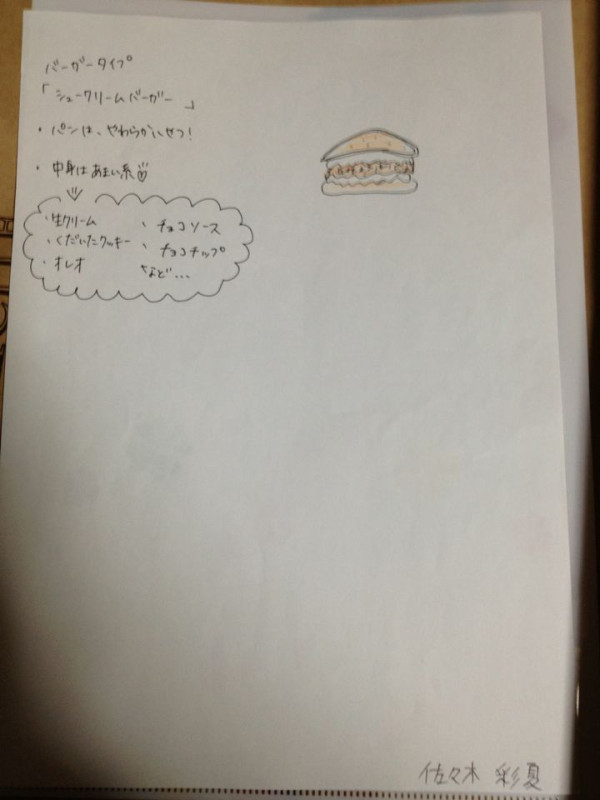 バーガータイプ
「シュークリームバーガー」
・パンは、やわらかいやつ!
・中身はあまい系
・生クリーム
・くだいたクッキー
・オレオ
、チョコソース
、チョコチップ
など...
佐々木 彩夏